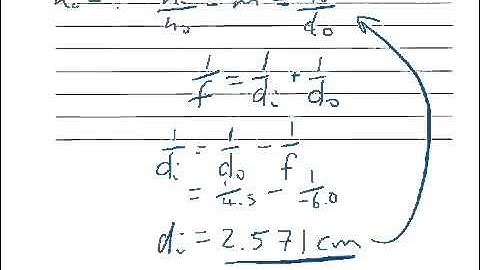 = m =
d₀
1/f = 1/dᵢ + 1/d₀
1/dᵢ = 1/d₀ - 1/f
= 1/4.5 - 1/-6.0
dᵢ = 2.571 cm